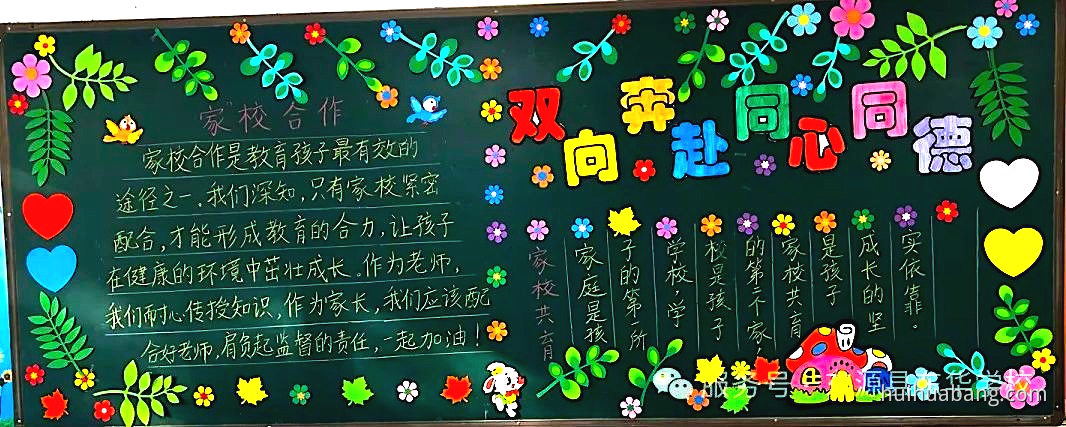 双向奔赴同心同德
家校合作
家校合作是教育孩子最有效的
途径之一,我们深知,只有家校紧密
配合,才能形成教育的合力,让孩子
在健康的环境中茁壮成长。作为老师,
我们耐心传授知识,作为家长,我们应该配
合好老师,肩负起监督的责任,一起加油!
家校共育
家庭是孩
子的第一所
学校,学
校是孩子
的第二个家
家校共育
是孩子
成长的坚
实依靠。
服务号
源县
华学校
huihuabang.com